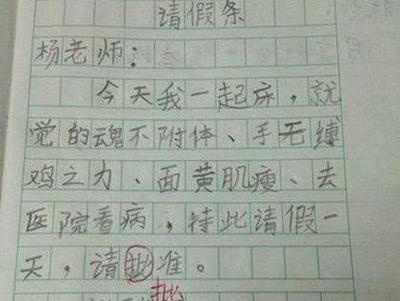 请假条
杨老师：
今天我一起床，就
觉的魂不附体、手无缚
鸡之力、面黄肌瘦、去
医院看病，特此请假一
天，请批准。
批